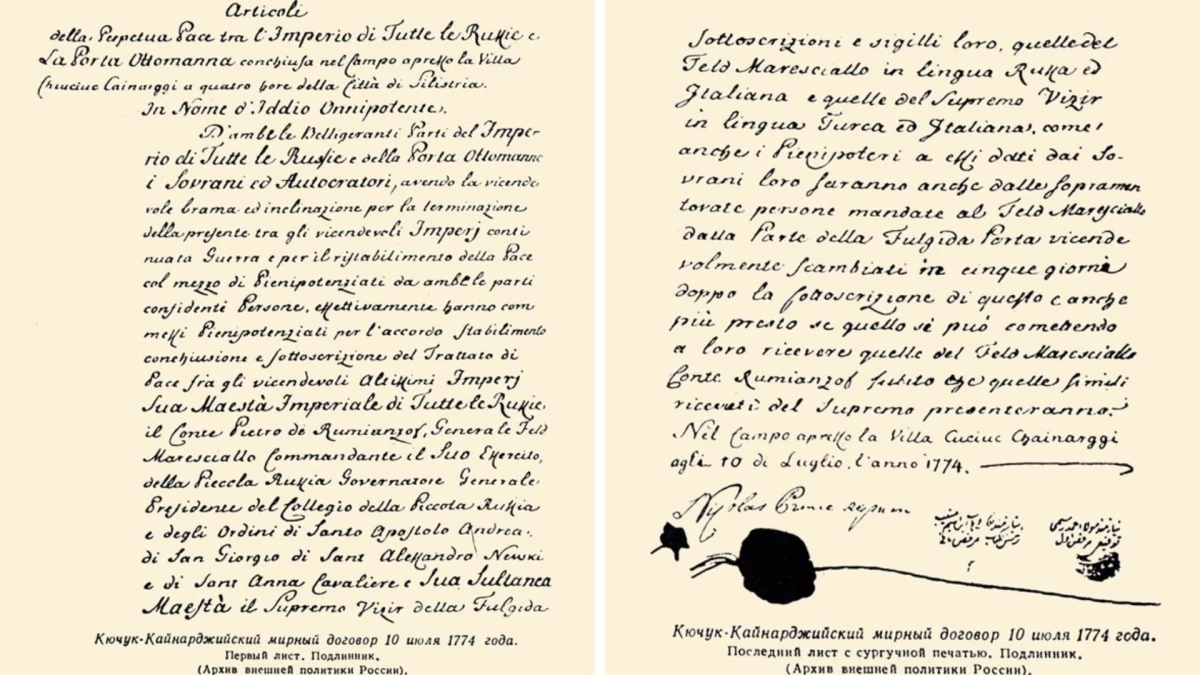 Articoli
della Perpetua Pace tra l'Imperio di Tutte le Russie e
La Porta Ottomanna conchiusa nel Campo apresso la Villa
Chiuciuc Cainarggi a quatro hore della Città di Silistria.
In Nome d'Iddio Onnipotente.
D'ambe le Belligeranti Parti del Impe-
rio di Tutte le Russie e della Porta Ottomanna
i Sovrani ed Autocratori, avendo la vicende
vole brama ed inclinazione per la terminazione
della presente tra gli vicendevoli Imperj conti
nuata Guerra e per il ristabilimento della Pace
col mezzo di Pienipotenziati da ambe le parti
confidenti Persone, effettivamente hanno com
messi Pienipotenziati per l'accordo stabilimento
conchiusione e sottoscrizione del Trattato di
Pace fra gli vicendevoli Altissimi Imperj
Sua Maestà Imperiale di Tutte le Russie,
il Conte Pietro de Rumianzof, Generale Feld
Maresciallo Commandante il Suo Esercito,
della Piccola Russia Governatore Generale
Presidente del Collegio della Piccola Russia
e degli Ordini di Santo Apostolo Andrea,
di San Giorgio di Sant Alessandro Newski
e di Sant Anna Cavaliere e Sua Sultanea
Maestà il Supremo Vizir della Fulgida
Кючук-Кайнарджийский мирный договор 10 июля 1774 года.
Первый лист. Подлинник.
(Архив внешней политики России).
sottoscrizioni e sigilli loro, quelle del
Feld Maresciallo in lingua Russa ed
Italiana e quelle del Supremo Vizir
in lingua Turca ed Italiana, come
anche i Pienipoteri a essi dati dai So-
vrani loro saranno anche dalle sopramen
tovate persone mandate al Feld Maresciallo
dalla Parte della Fulgida Porta vicende
volmente scambiati in cinque giorni
doppo la sottoscrizione di questo e anche
più presto se quello si può comettendo
a loro ricevere quelle del Feld Maresciallo
Conte Rumianzof subito che quelle simili
ricevuti del Supremo presenteranno.
Nel Campo apresso la Villa Cuciuc Chainarggi
agli 10 di Luglio, l'anno 1774.
Nicolas Prince Repnin
Кючук-Кайнарджийский мирный договор 10 июля 1774 года.
Последний лист с сургучной печатью. Подлинник.
(Архив внешней политики России).